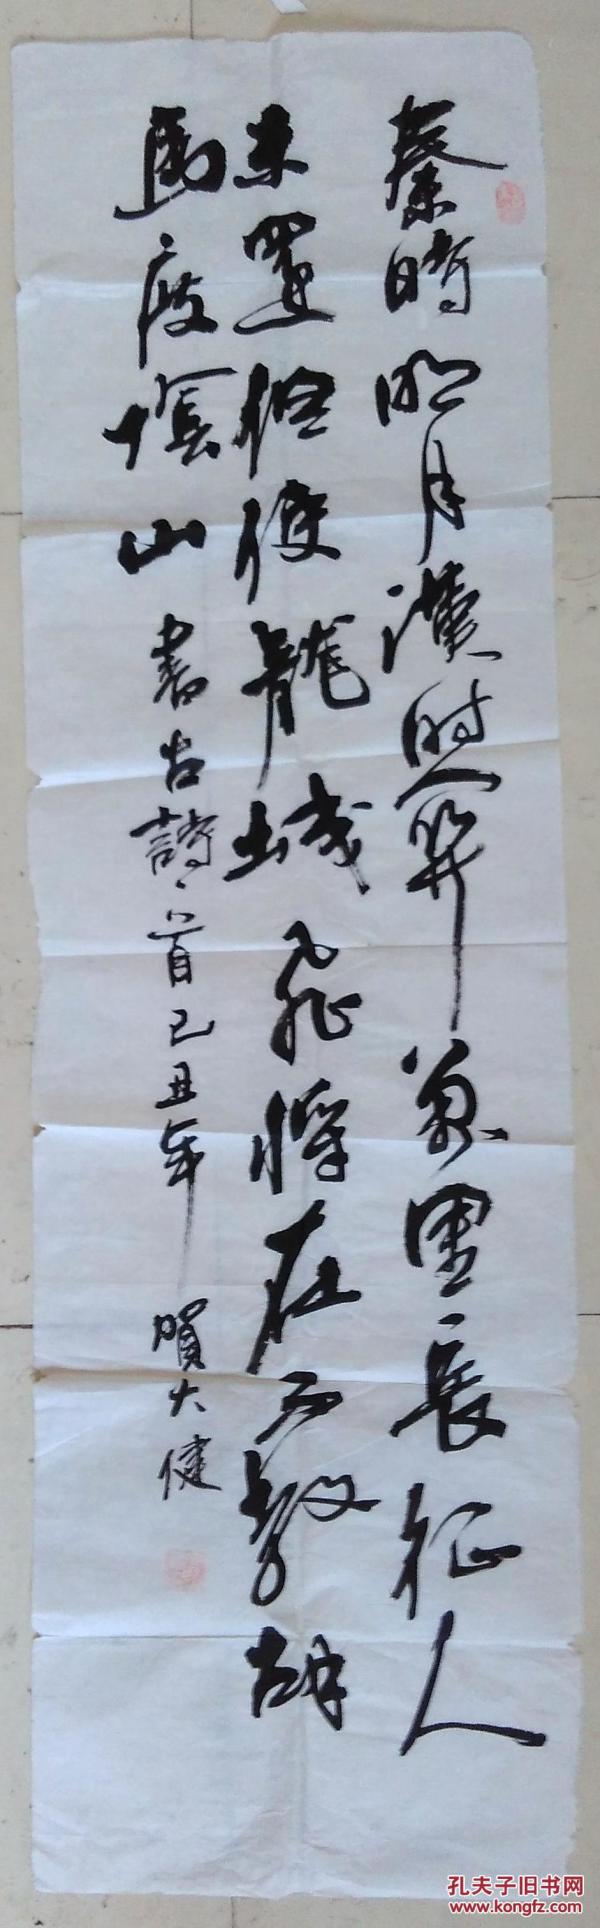 秦時明月漢時關萬里長征人
未還但使龍城飛將在不教胡
馬度陰山 書古詩一首己丑年 賀大健
孔夫子旧书网
www.kongfz.com